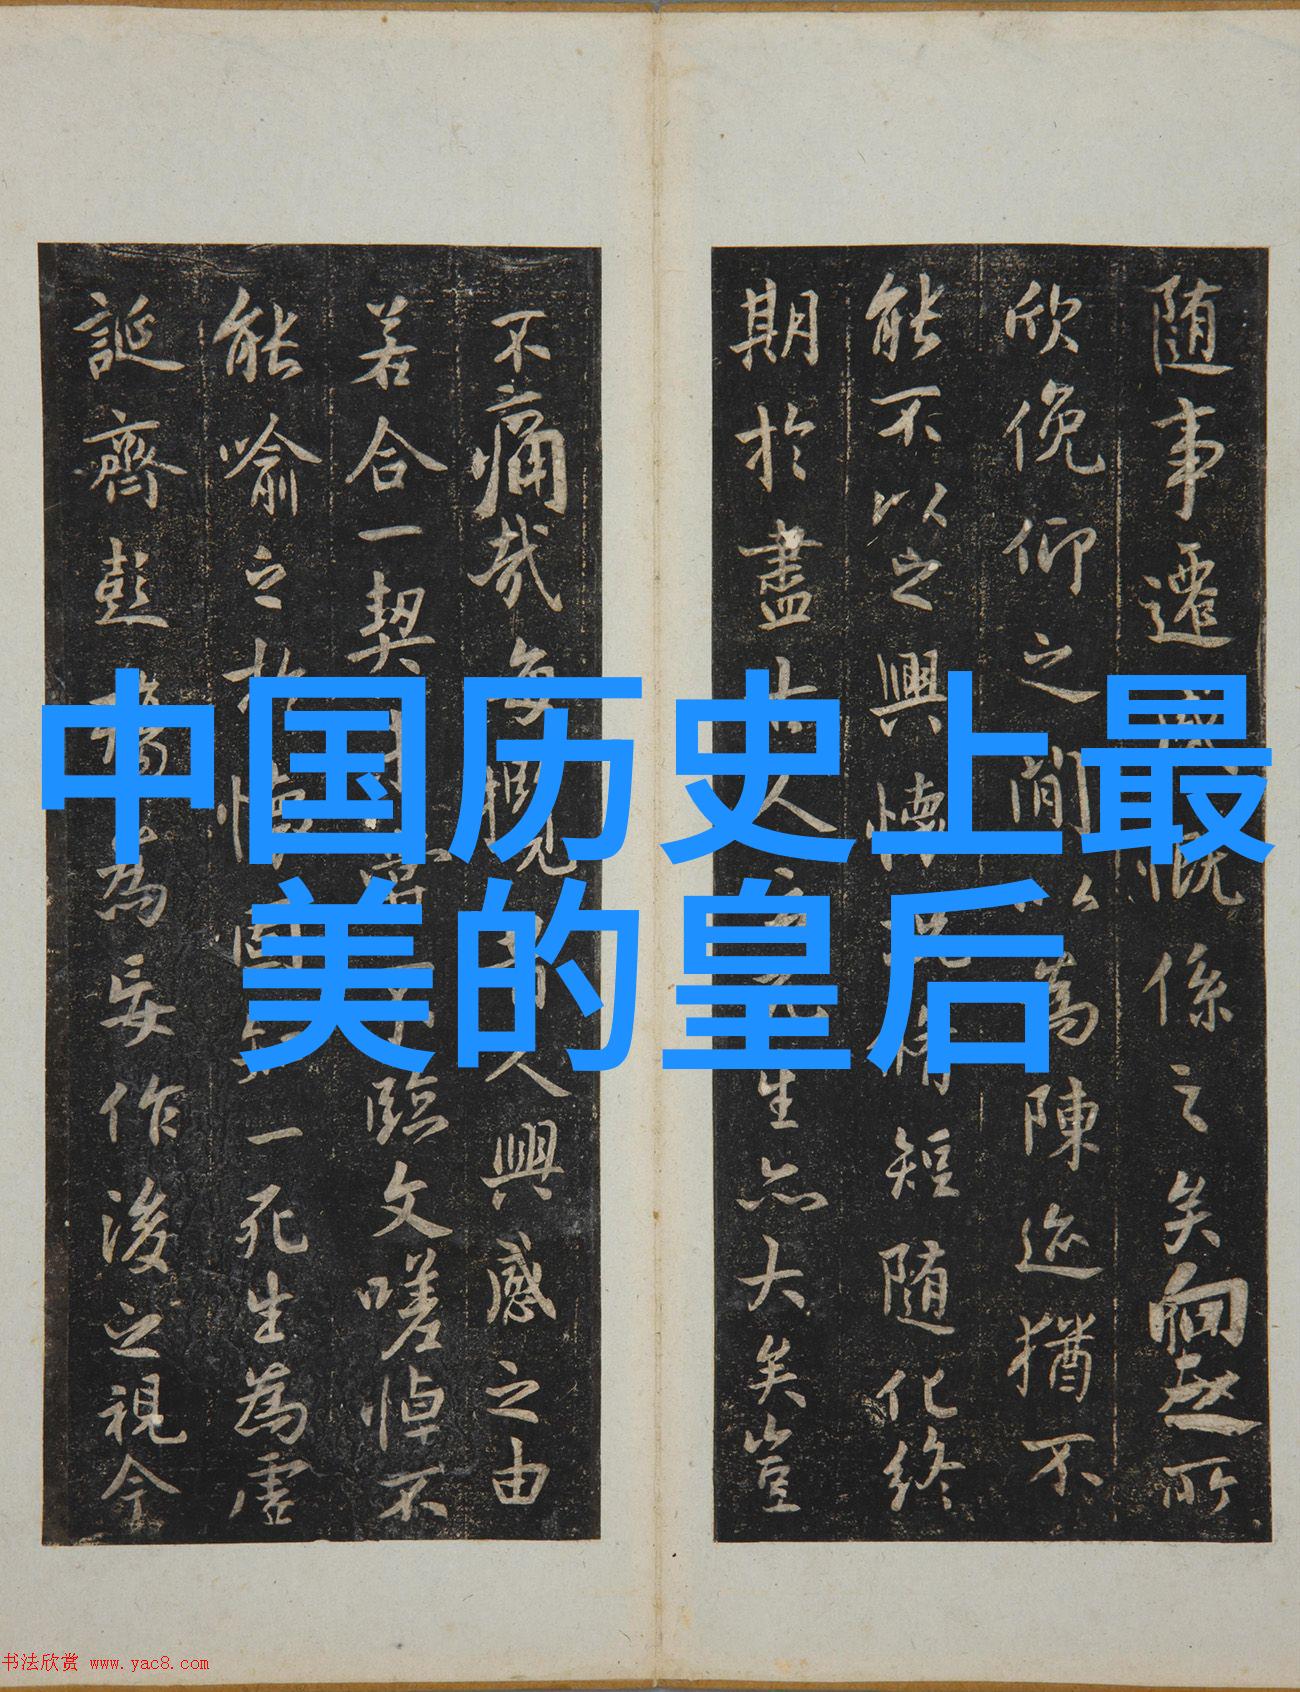 随事遷感慨係之矣向之所
欣俛仰之閒以為陳迹猶不
能不以之興懷况脩短随化終
期於盡古人云死生亦大矣豈
不痛哉每攬昔人興感之由
若合一契未嘗不臨文嗟悼不
能喻之於懷固知一死生為虛
誕齊彭殤為妄作後之視今
中国历史上最
美的皇后
书法欣赏 www.yac8.com